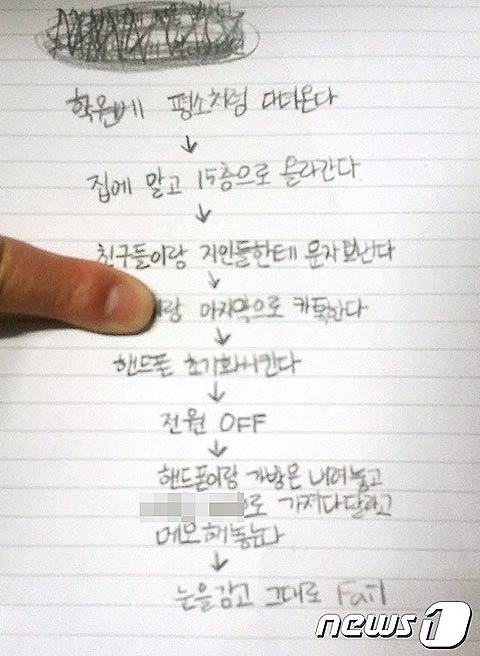 학원에 평소처럼 다녀온다
↓
집에 말고 15층으로 올라간다
↓
친구들이랑 지인들한테 문자보낸다
↓
랑 마지막으로 카톡한다
↓
핸드폰 초기화시킨다
↓
전원 OFF
↓
핸드폰이랑 가방은 내려놓고
로 가져다달라고
메모해놓는다
↓
눈을감고 그대로 Fall
news1